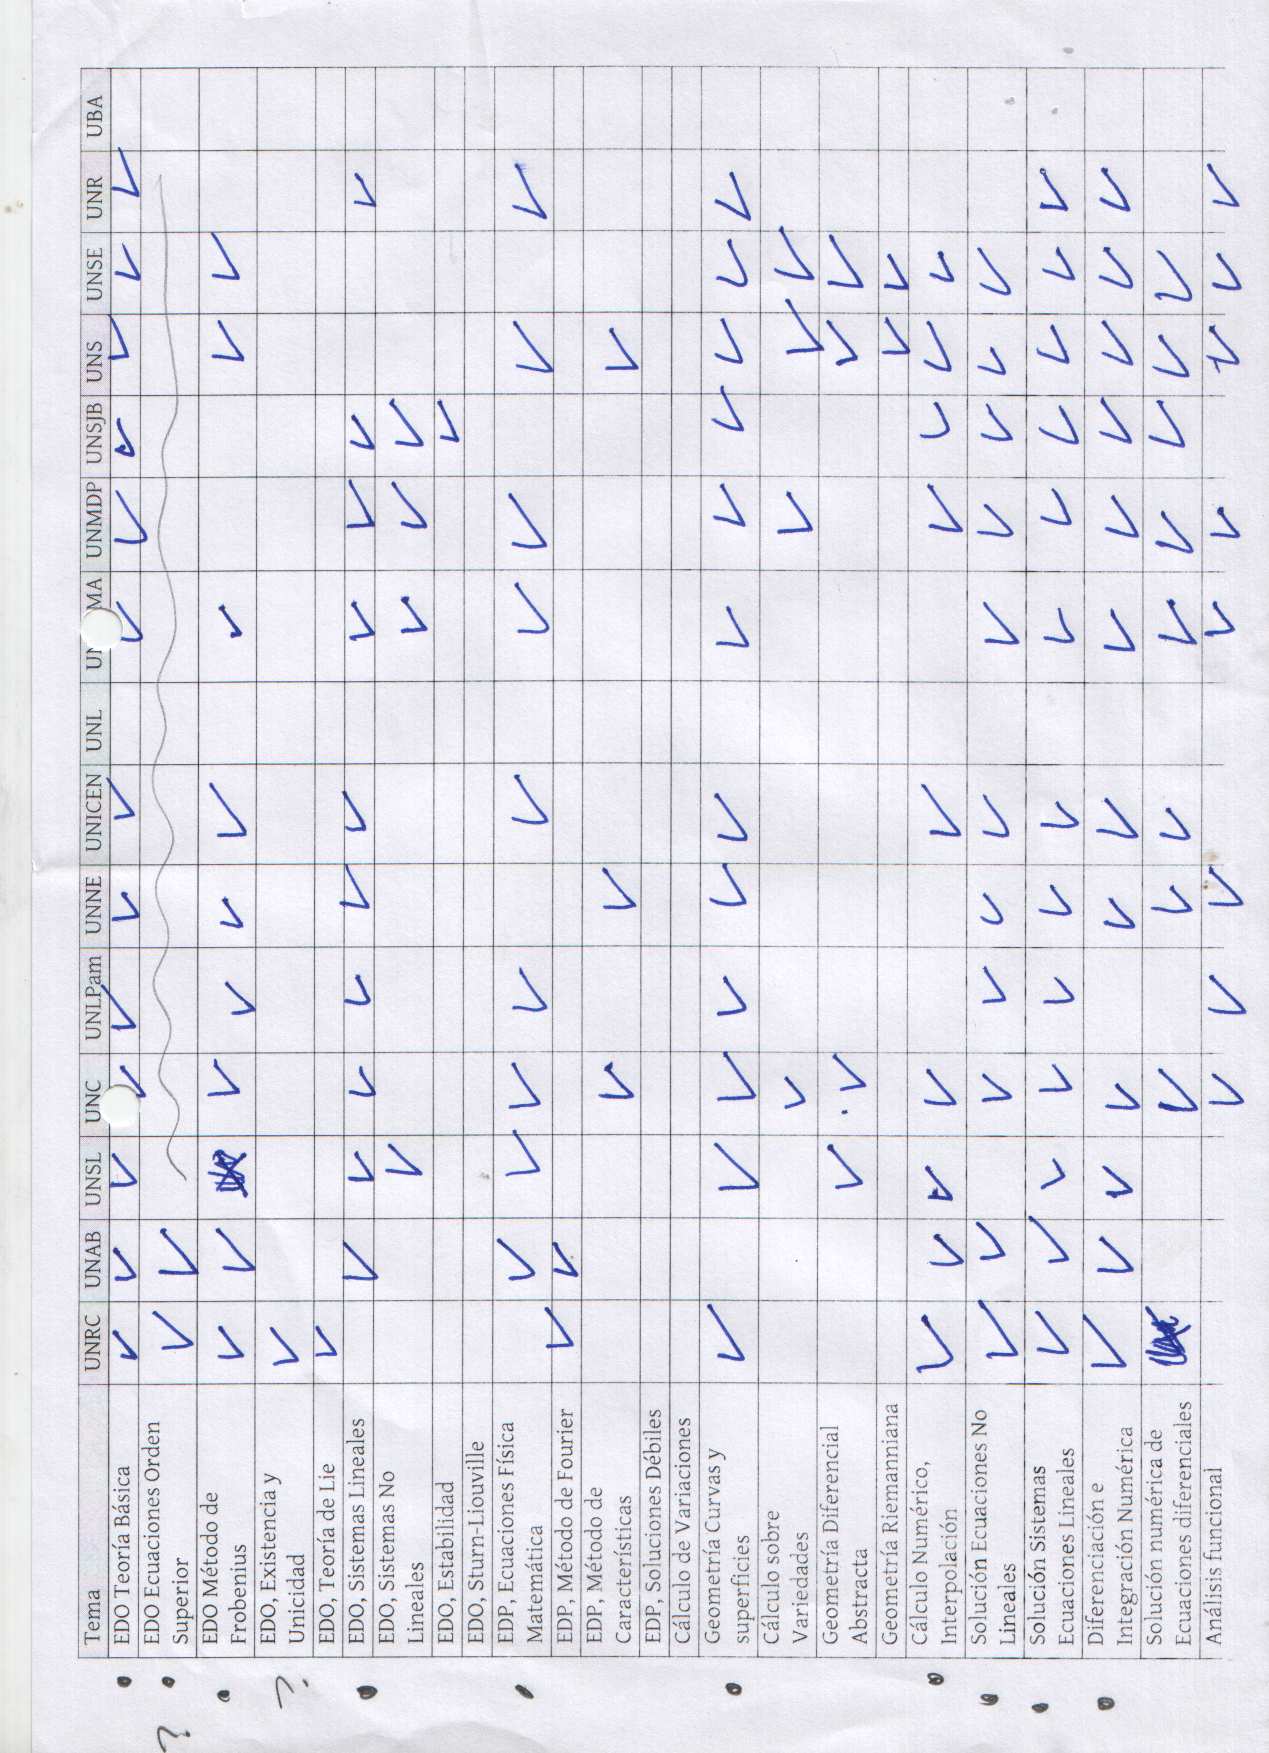 Tema UNRC UNAB UNSL UNC UNLPam UNNE UNICEN UNL UNMDP UNSJB UNS UNSE UNR UBA
EDO Teoría Básica
? EDO Ecuaciones Orden
Superior
EDO Método de
Frobenius
? EDO, Existencia y
Unicidad
EDO, Teoría de Lie
EDO, Sistemas Lineales
EDO, Sistemas No
Lineales
EDO, Estabilidad
EDO, Sturn-Liouville
EDP, Ecuaciones Física
Matemática
EDP, Método de Fourier
EDP, Método de
Características
EDP, Soluciones Débiles
Cálculo de Variaciones
Geometría Curvas y
superficies
Cálculo sobre
Variedades
Geometría Diferencial
Abstracta
Geometría Riemanniana
Cálculo Numérico,
Interpolación
Solución Ecuaciones No
Lineales
Solución Sistemas
Ecuaciones Lineales
Diferenciación e
Integración Numérica
Solución numérica de
Ecuaciones diferenciales
Análisis funcional